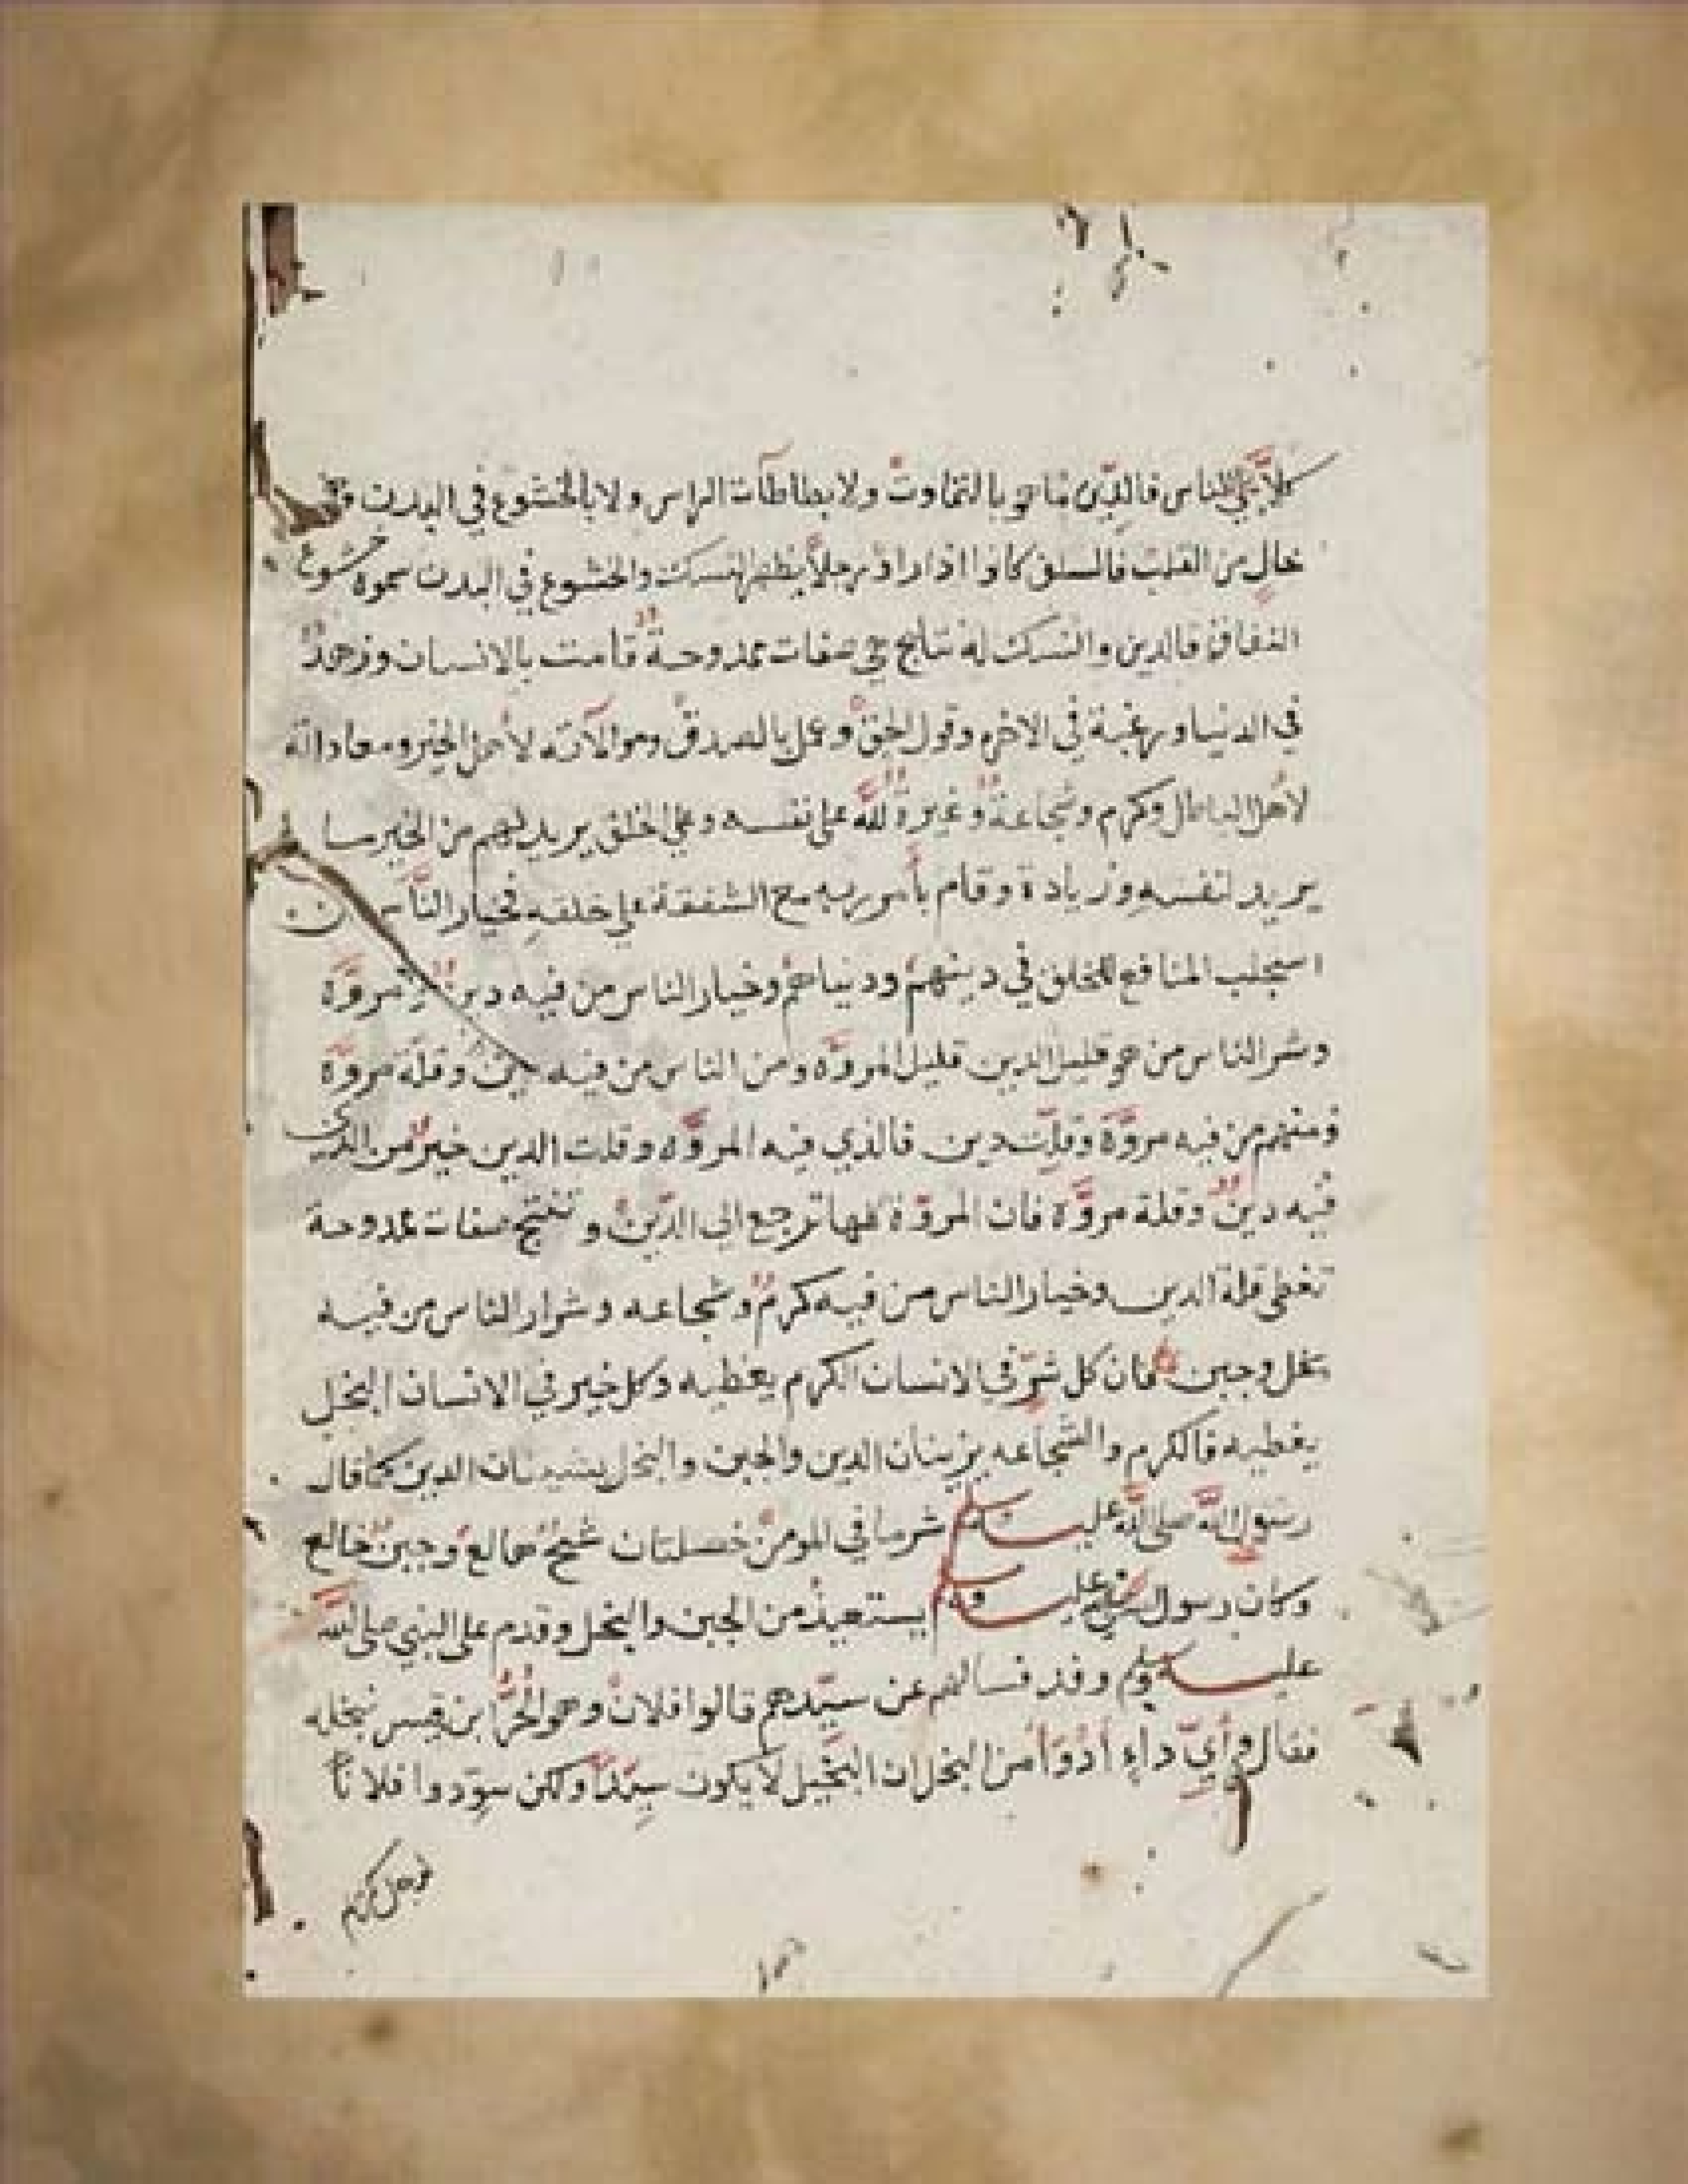 كلاً علي الناس فالدّين ما هو بالتماوت ولا بطاطات الراس ولا بالخشوع في البدن
خال من القلب فالسلف كانوا اذا راوا رجلاً يظهر النسك والخشوع في البدن سموه خشوع
النفاق فالدين والنسك له نتايج هي صفات ممدوحةٌ قامت بالانسان وزهدٌ
في الدنيا ورغبة في الاخره وقول الحق وعمل بالصدق وموالآته لأهل الخير ومعاداته
لاهل الباطل وكرم وشجاعةٌ وغيرةٌ لله على نفسه وعلي الخلق يريد لهم من الخير ما
يريد لنفسه وزيادة وقام بأمور ربه مع الشفقة علي خلقهِ فخيار الناس من
استجلب المنافع للخلق في دينهم ودنياهم وخيار الناس من فيه دين ومروّة
وشر الناس من هو قليل الدين قليل المروّه ومن الناس من فيه دين وقلّة مروّة
ومنهم من فيه مروّة وقلّت دين فالذي فيه المروّه وقلت الدين خيرٌ من الذي
فيه دينٌ وقلة مروّة فان المروّة لها ترجع الي الدّين وتنتج صفات ممدوحة
تغطي قلة الدين وخيار الناس من فيه كرمٌ وشجاعه وشرار الناس من فيه
بخل وجبن فان كل شرّ في الانسان الكرم يغطيه وكل خير في الانسان البخل
يغطيه فالكرم والشجاعه يزينان الدين والجبن والبخل يشينان الدين كما قال
رسول اللّه صلى اللّه عليه وسلم شر ما في المومن خصلتان شحٌ هالع وجبنٌ خالع
وكان رسول صلي عليه وسلم يستعيذ من الجبن والبخل وقدم على النبي صلى اللّه
عليه وسلم وفد فسالهم عن سيّدهم قالوا فلانٌ وهو الحرّ ابن قيس نبخله
فقال وأيّ داءٍ أدْوَأ من البخل ان البخيل لا يكون سيّداً ولكن سوّدوا فلاناً
فرجل كريم